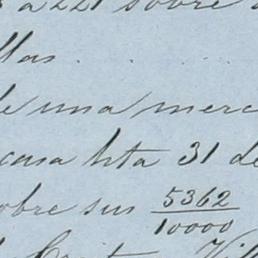 a 221 sobre
llas.
de una merc
casa hta 31 de
obre sus 5362/10000